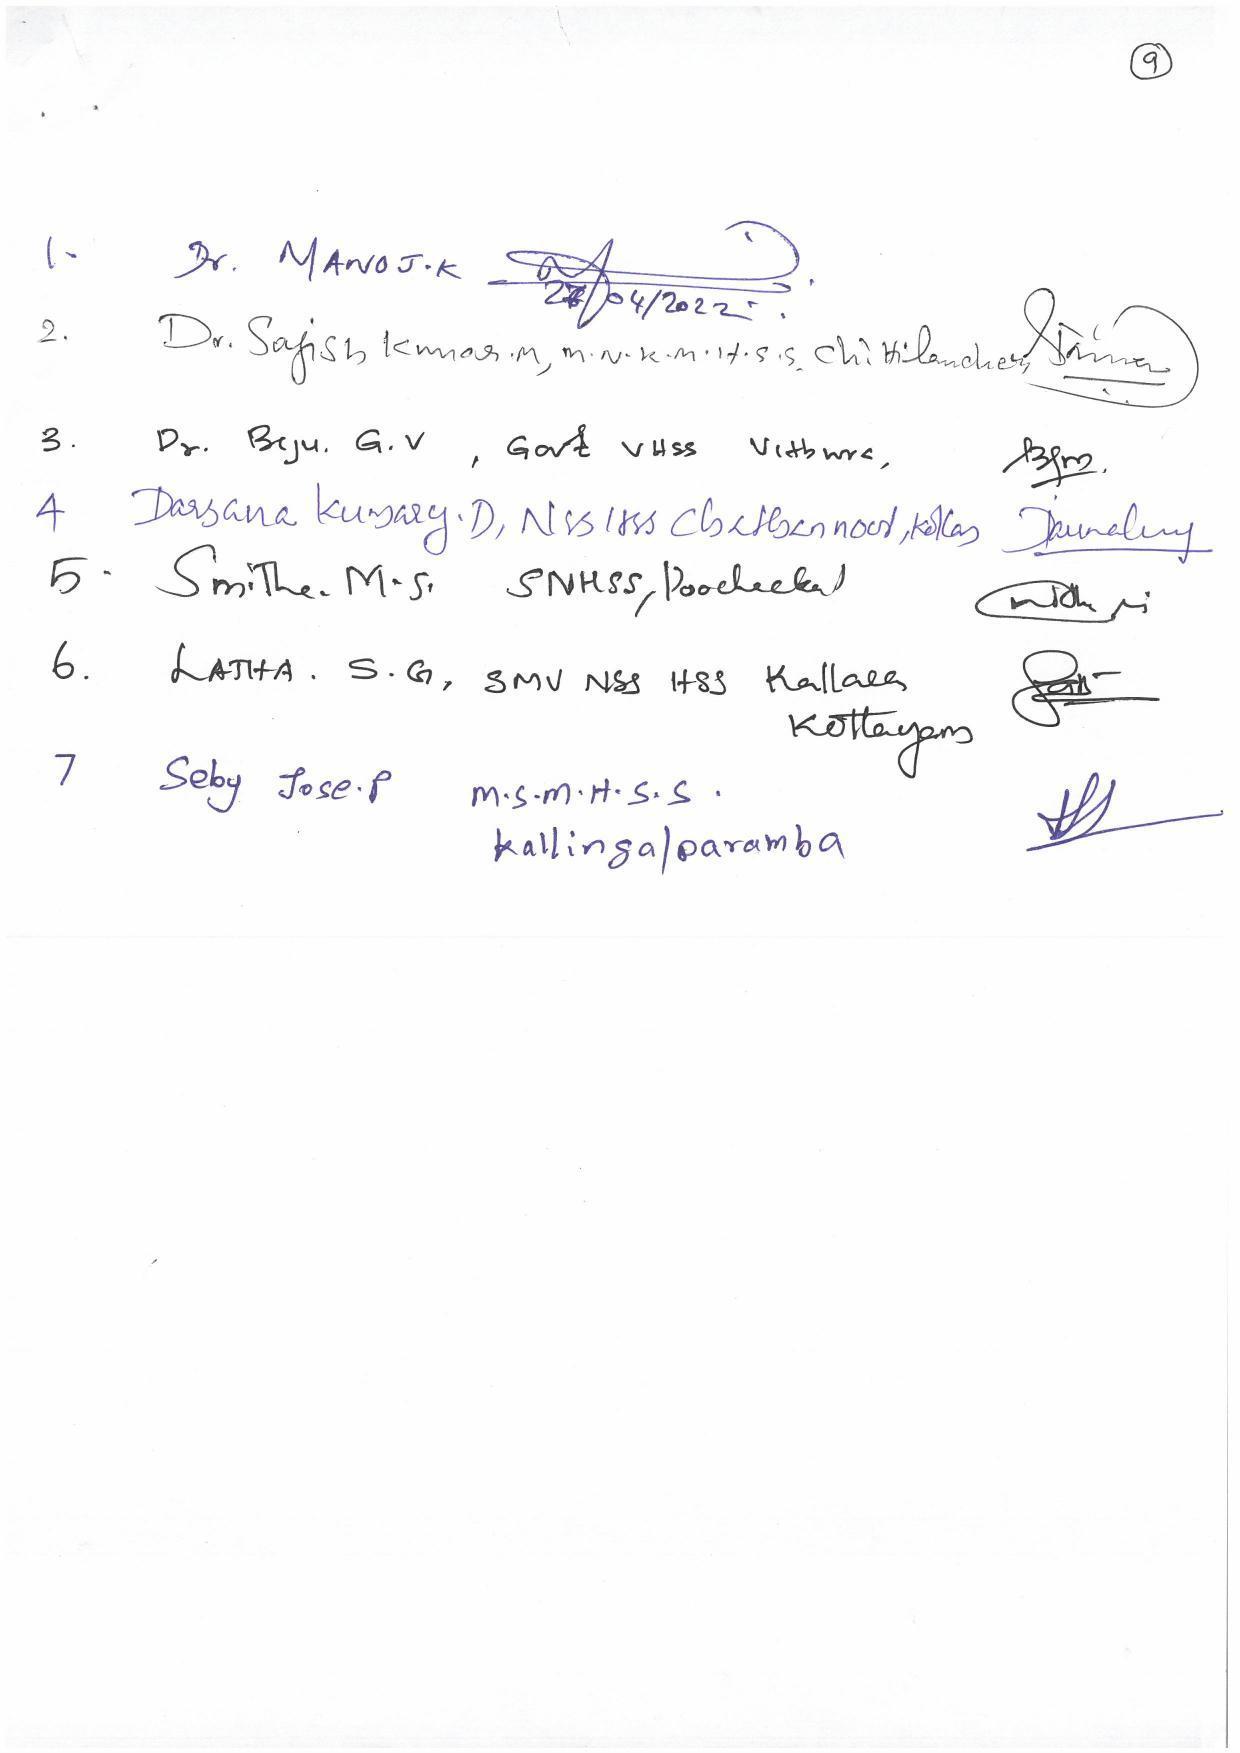 9
1- Dr. MANOJ.K
27/04/2022
2. Dr. Sajish Kumar.M, m.N.K.M.H.S.S. Chittilancheri,
3. Dr. Beju. G.V, Govt VHSS Vithura,
4 Darsana Kumary.D, NSS HSS Chathannoor, Kollam
5. Smitha. M.S. SNHSS, Poocheekal
6. LATHA. S.G, SMV NSS HSS Kallara
Kottayam
7 Seby Jose.P m.s.m.H.S.S.
kallingalparamba